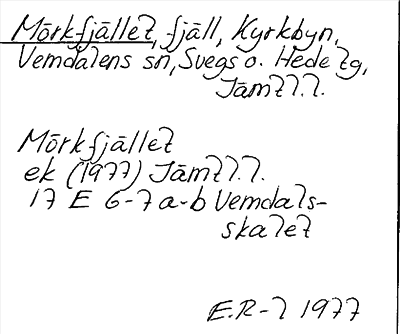 Mörkfjället, fjäll, Kyrkbyn,
Vemdalens sn, Svegs o. Hede tg,
Jämtl.l.
Mörkfjället
ek (1977) Jämtl.l.
17 E 6-7 a-b Vemdals-
skalet
E.R-l 1977